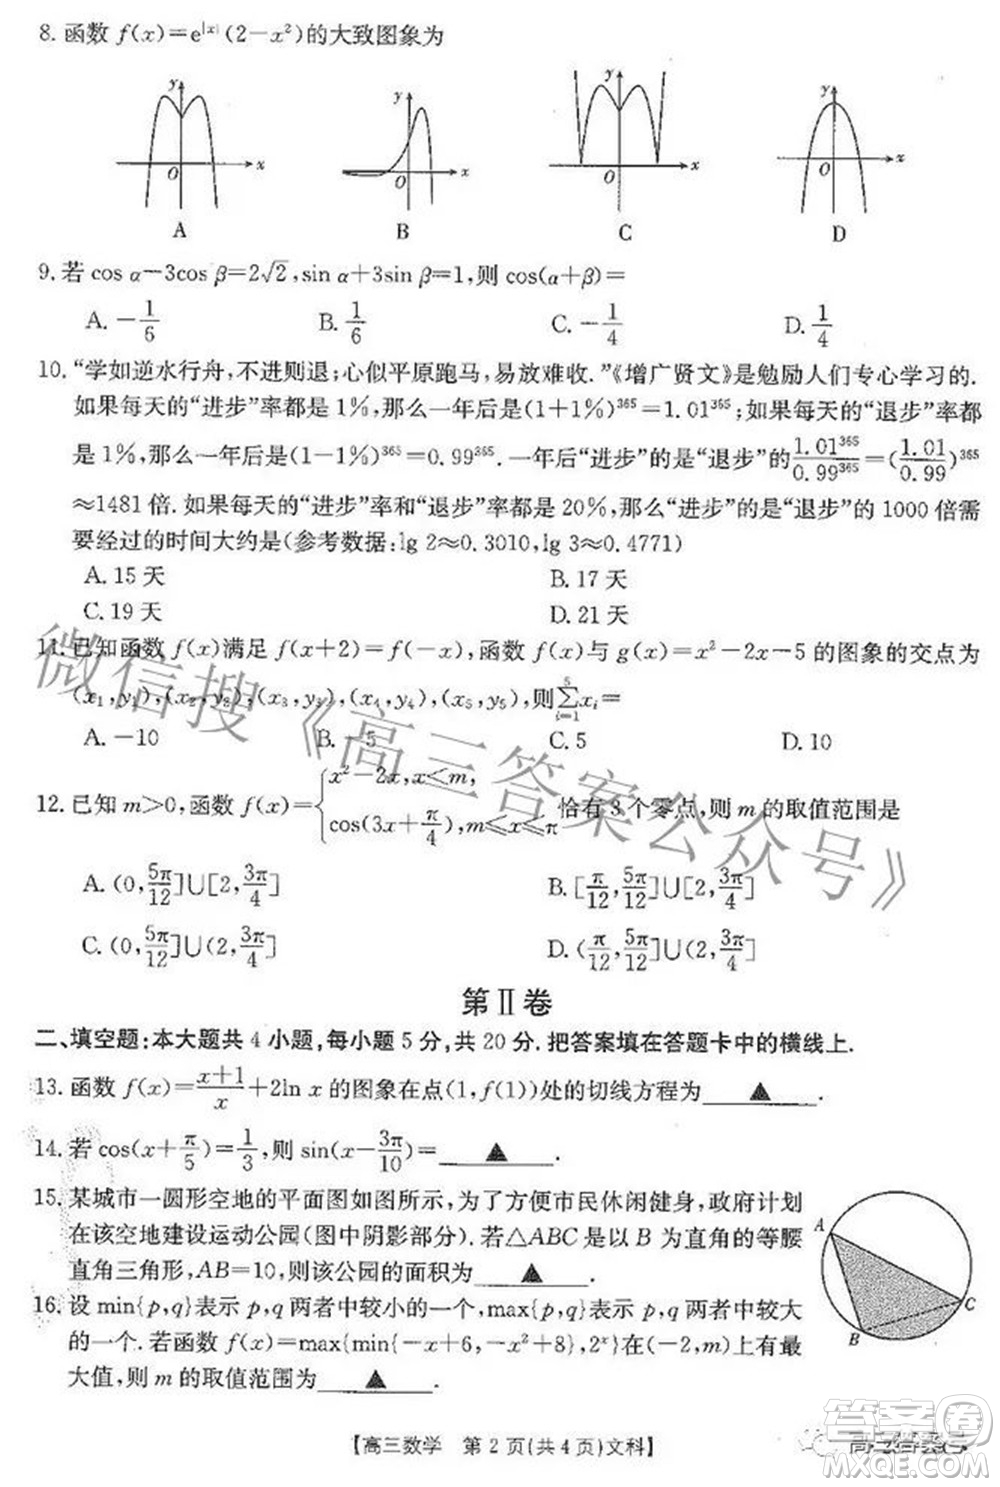 8. 函数 f(x)=e^|x|(2-x²)的大致图象为
y
O
x
A
y
O
x
B
y
O
x
C
y
O
x
D
9. 若 cos α-3cos β=2√2, sin α+3sin β=1, 则 cos(α+β)=
A. -1/6 B. 1/6 C. -1/4 D. 1/4
10. “学如逆水行舟, 不进则退; 心似平原跑马, 易放难收.”《增广贤文》是勉励人们专心学习的.
如果每天的“进步”率都是 1%, 那么一年后是(1+1%)³⁶⁵=1.01³⁶⁵; 如果每天的“退步”率都
是 1%, 那么一年后是(1-1%)³⁶⁵=0.99³⁶⁵. 一年后“进步”的是“退步”的1.01³⁶⁵/0.99³⁶⁵=(1.01/0.99)³⁶⁵
≈1481 倍. 如果每天的“进步”率和“退步”率都是 20%, 那么“进步”的是“退步”的 1000 倍需
要经过的时间大约是(参考数据: lg 2≈0.3010, lg 3≈0.4771)
A. 15 天 B. 17 天
C. 19 天 D. 21 天
11. 已知函数 f(x)满足 f(x+2)=f(-x), 函数 f(x)与 g(x)=x²-2x-5 的图象的交点为
(x₁,y₁),(x₂,y₂),(x₃,y₃),(x₄,y₄),(x₅,y₅), 则∑_{i=1}^{5}xᵢ=
A. -10 B. -5 C. 5 D. 10
12. 已知 m>0, 函数 f(x)={x²-2x, x<m, cos(3x+π/4), m≤x≤π 恰有 3 个零点, 则 m 的取值范围是
A. (0,5π/12]∪[2,3π/4] B. [π/12,5π/12]∪[2,3π/4]
C. (0,5π/12]∪(2,3π/4] D. (π/12,5π/12]∪(2,3π/4]
第Ⅱ卷
二、填空题: 本大题共 4 小题, 每小题 5 分, 共 20 分. 把答案填在答题卡中的横线上.
13. 函数 f(x)=(x+1)/x+2ln x 的图象在点(1,f(1))处的切线方程为 ▲
14. 若 cos(x+π/5)=1/3, 则 sin(x-3π/10)= ▲ .
15. 某城市一圆形空地的平面图如图所示, 为了方便市民休闲健身, 政府计划
在该空地建设运动公园(图中阴影部分). 若△ABC 是以 B 为直角的等腰
直角三角形, AB=10, 则该公园的面积为 ▲ .
A
B
C
16. 设 min{p,q}表示 p,q 两者中较小的一个, max{p,q}表示 p,q 两者中较大
的一个. 若函数 f(x)=max{min{-x+6,-x²+8},2ˣ}在(-2,m)上有最
大值, 则 m 的取值范围为 ▲ .
【高三数学 第 2 页(共 4 页)文科】
微信搜《高三答案公众号》
答案卷
高三答案号